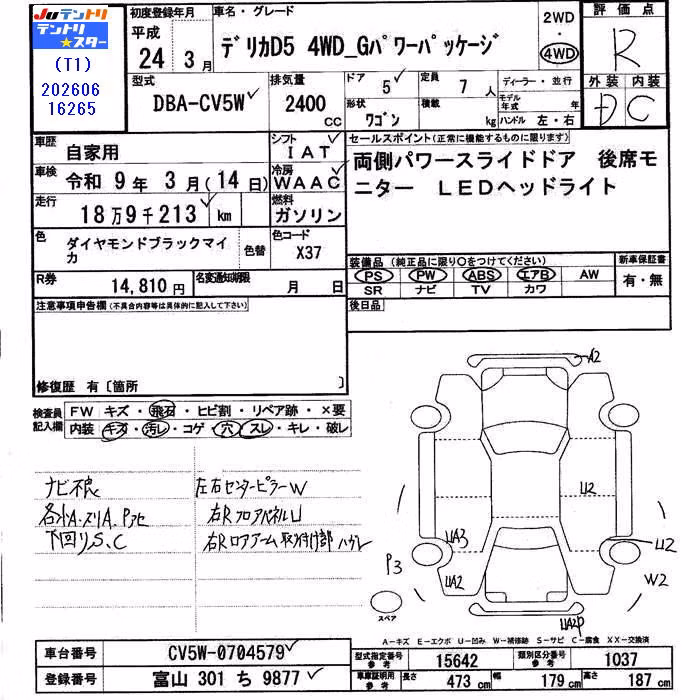 Juテントリ
テントリ
★スター
(T1)
202606
16265
初度登録年月
平成
24 3月
車名・グレード
デリカD5 4WD_Gパワーパッケージ
2WD
・
4WD
評価点
R
型式
DBA-CV5W
排気量
2400
CC
ドア
5
形状
ワゴン
定員
7人
積載
kg
ディーラー・並行
モデル年式 年
ハンドル 左・右
外装 内装
D C
車歴
自家用
シフト
IAT
車検
令和 9年 3月(14日)
冷房
WAAC
走行
18万9千213 km
燃料
ガソリン
色
ダイヤモンドブラックマイカ
色替
色コード
X37
R券
14,810円
名変通知期限
月 日
セールスポイント(正常に機能するものに限ります)
両側パワースライドドア 後席モ
ニター LEDヘッドライト
装備品(純正品に限り○をつけてください)
新車保証書
PS PW ABS エアB AW
SR ナビ TV カワ
有・無
注意事項申告欄(不具合内容等は具体的に記入して下さい)
後日品
修復歴 有〔箇所 〕
検査員
記入欄
FW キズ・飛石・ヒビ割・リペア跡・×要
内装 キズ・汚レ・コゲ・穴・スレ・キレ・破レ
ナビ不良
下回りS、C
左右センターピラーW
右RフロアパネルU
右Rロアアーム取付け部
A2
U2
UA3
UA2
U2
W2
P3
UA2P
スペア
A-キズ E-エクボ U-凹み W-補修跡 S-サビ C-腐食 XX-交換済
車台番号
CV5W-0704579
登録番号
富山 301 ち 9877
型式指定番号
参考
15642
類別区分番号
参考
1037
車庫証明用
参考
長さ
473 cm
幅
179 cm
高さ
187 cm